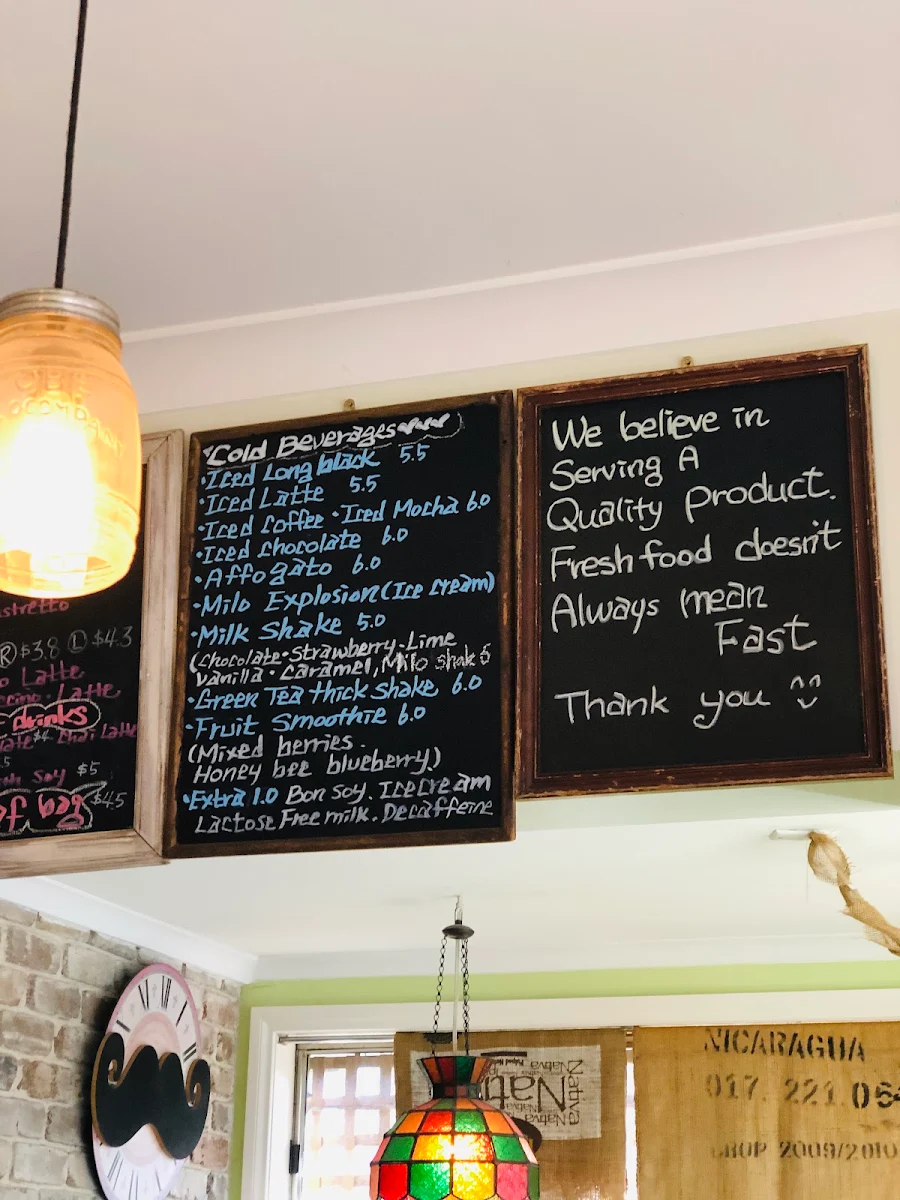 Cold Beverages
•Iced Long black 5.5
•Iced Latte 5.5
•Iced Coffee •Iced Mocha 6.0
•Iced Chocolate 6.0
•Affogato 6.0
•Milo Explosion (Ice cream)
•Milk Shake 5.0
(Chocolate•Strawberry•Lime
Vanilla•Caramel, Milo shak 5
•Green Tea thick shake 6.0
•Fruit Smoothie 6.0
(Mixed berries.
Honey bee blueberry)
•Extra 1.0 Bon soy. Ice cream
Lactose Free milk. Decaffeine
We believe in
Serving A
Quality product.
Fresh food doesn't
Always mean
Fast
Thank you
(R) $3.8 (L) $4.3
Latte
Latte
drinks
$4 Chai Latte
soy $5
of bag $4.5
NICARAGUA
017. 221.
CROP 2009/2010
Nativa
Nativa